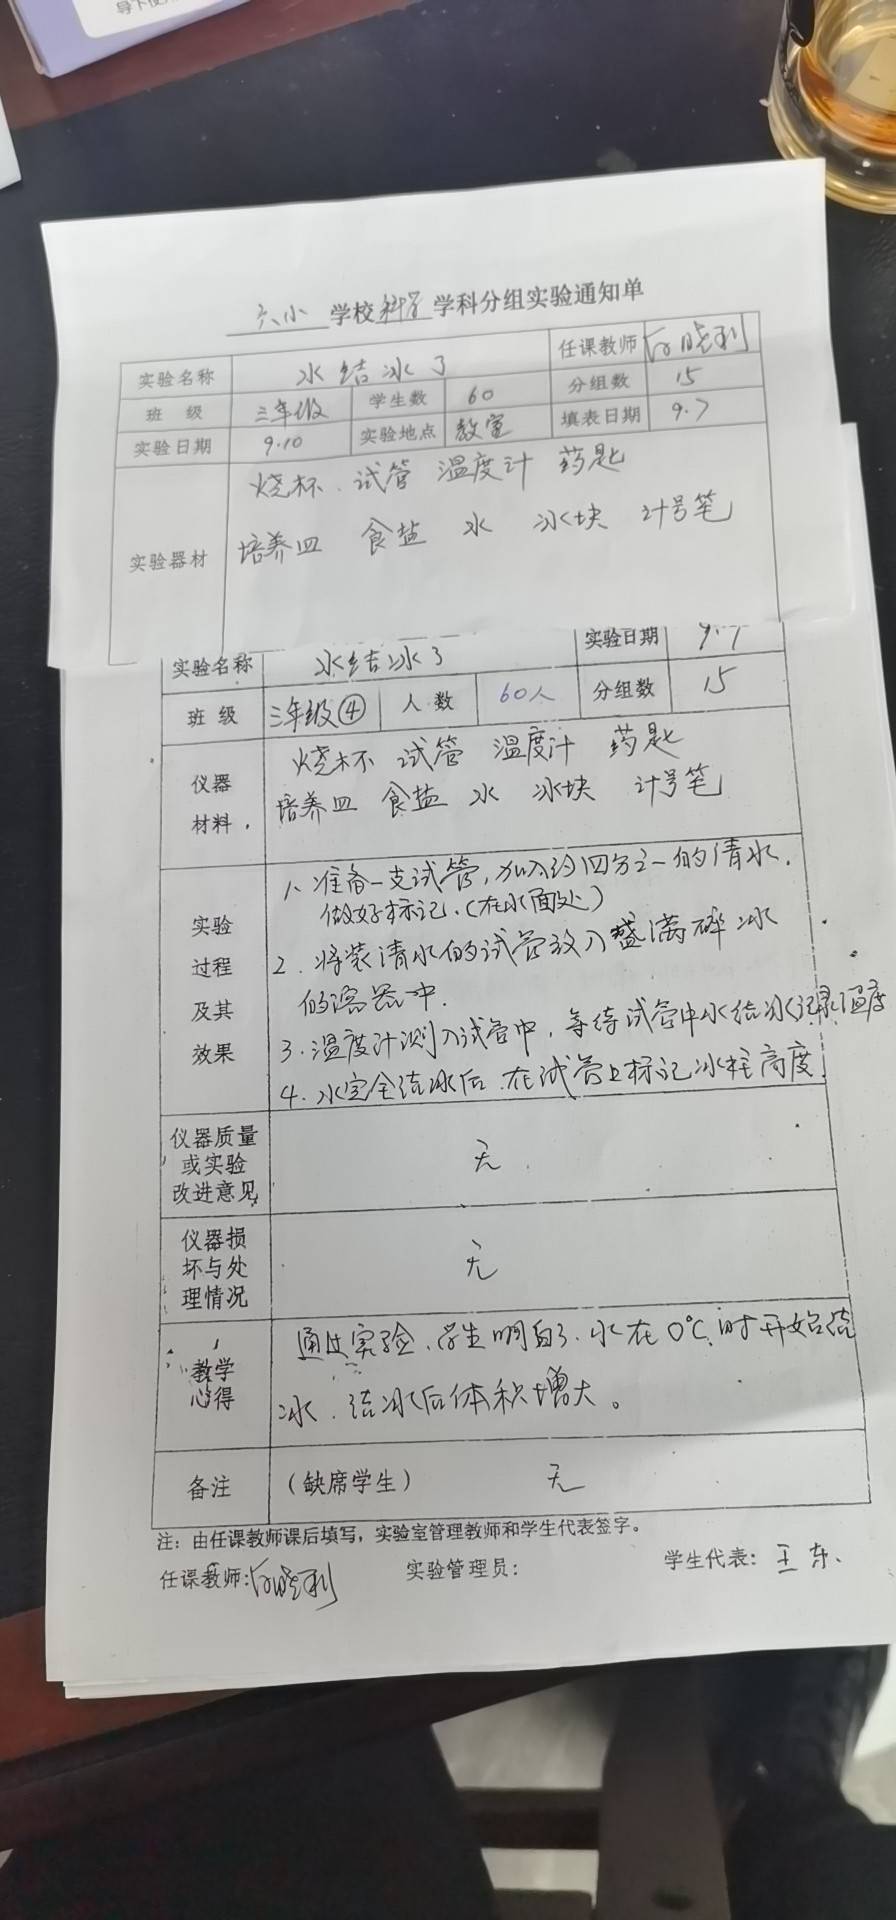 六小 学校 科学 学科分组实验通知单
实验名称 水结冰了 任课教师 晓利
班 级 三年级 学生数 60 分组数 15
实验日期 9.10 实验地点 教室 填表日期 9.7
实验器材 烧杯. 试管 温度计 药匙
培养皿 食盐 水 冰块 计号笔
实验名称 水结冰了 实验日期
班 级 三年级④ 人 数 60人 分组数 15
仪器材料 烧杯 试管 温度计 药匙
培养皿 食盐 水 冰块 计号笔
实验过程及其效果
1、准备一支试管,加入约四分之一的清水.
做好标记.(在水面处)
2. 将装清水的试管放入盛满碎冰
的容器中.
3.温度计测入试管中,等待试管中水结冰记录温度
4.水完全结冰后.在试管上标记冰柱高度.
仪器质量或实验改进意见 无
仪器损坏与处理情况 无
教学心得 通过实验.学生明白了.水在0℃时开始结
冰.结冰后体积增大。
备注 (缺席学生) 无
注:由任课教师课后填写,实验室管理教师和学生代表签字。
任课教师: 晓利 实验管理员: 学生代表: 王东.